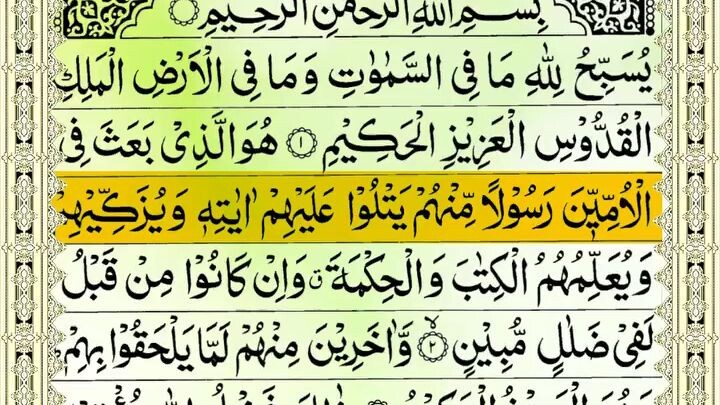 بِسْمِ اللهِ الرَّحْمٰنِ الرَّحِيْمِ
يُسَبِّحُ لِلّٰهِ مَا فِى السَّمٰوٰتِ وَمَا فِى الْاَرْضِ الْمَلِكِ
الْقُدُّوْسِ الْعَزِيْزِ الْحَكِيْمِ ۝۱ هُوَ الَّذِىْ بَعَثَ فِى
الْاُمِّيّٖنَ رَسُوْلًا مِّنْهُمْ يَتْلُوْا عَلَيْهِمْ اٰيٰتِهٖ وَيُزَكِّيْهِمْ
وَيُعَلِّمُهُمُ الْكِتٰبَ وَالْحِكْمَةَ ۗ وَاِنْ كَانُوْا مِنْ قَبْلُ
لَفِىْ ضَلٰلٍ مُّبِيْنٍ ۝۲ وَّاٰخَرِيْنَ مِنْهُمْ لَمَّا يَلْحَقُوْا بِهِمْ